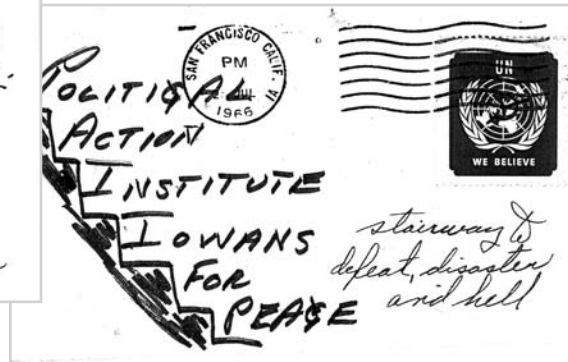 SAN FRANCISCO CALIF.
PM
JUL
1966
1A
UN
WE BELIEVE
POLITICAL
ACTION
INSTITUTE
IOWANS
FOR
PEACE
stairway to
defeat, disaster
and hell